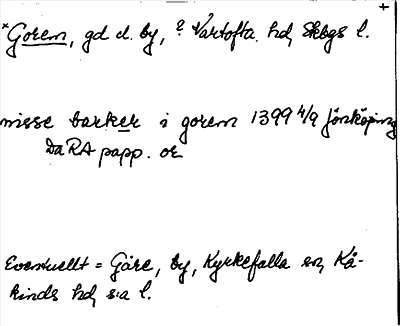 +
*Gorem, gd d. by, ? Vartofta hd, Skbgs l.
nisse barker i gorem 1399 4/9 Jönköping
DaRA papp. or
Eventuellt = Gåre, by, Kyrkefalla sn, Kå-
kinds hd, s:a l.